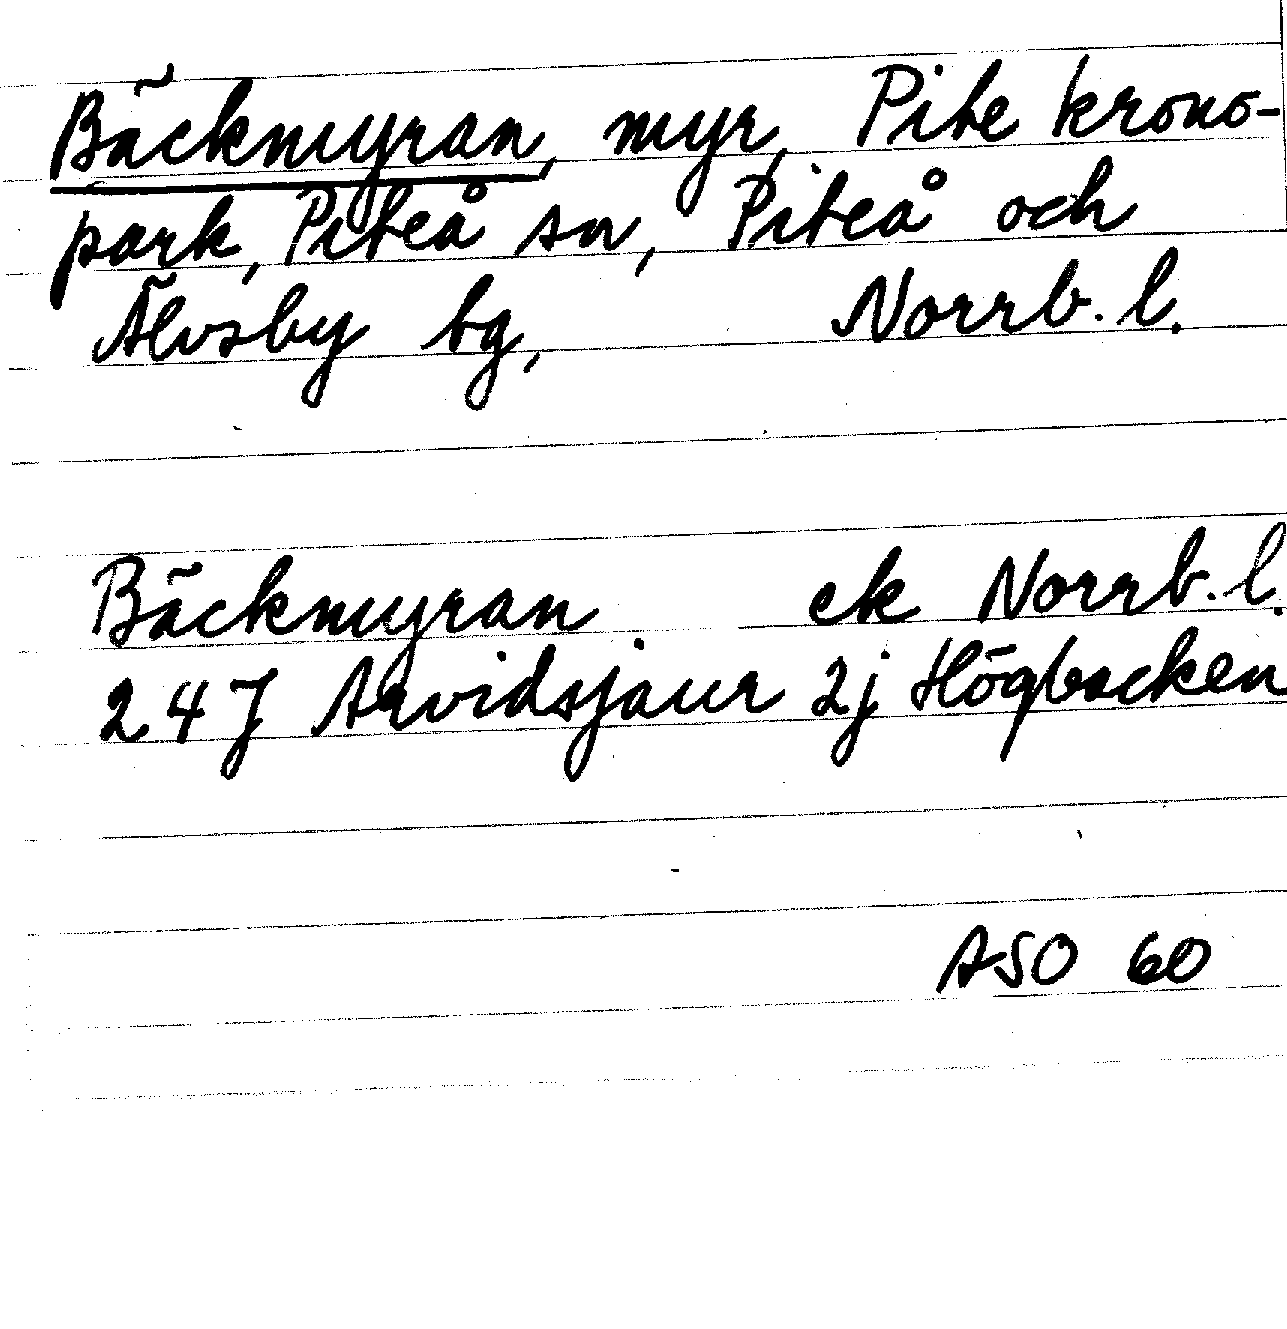 Bäckmyran, myr, Pite krono-
park, Piteå sn, Piteå och
Älvsby tg, Norrb. l.
Bäckmyran ek Norrb. l.
24J Arvidsjaur 2j Högbacken
ASO 60